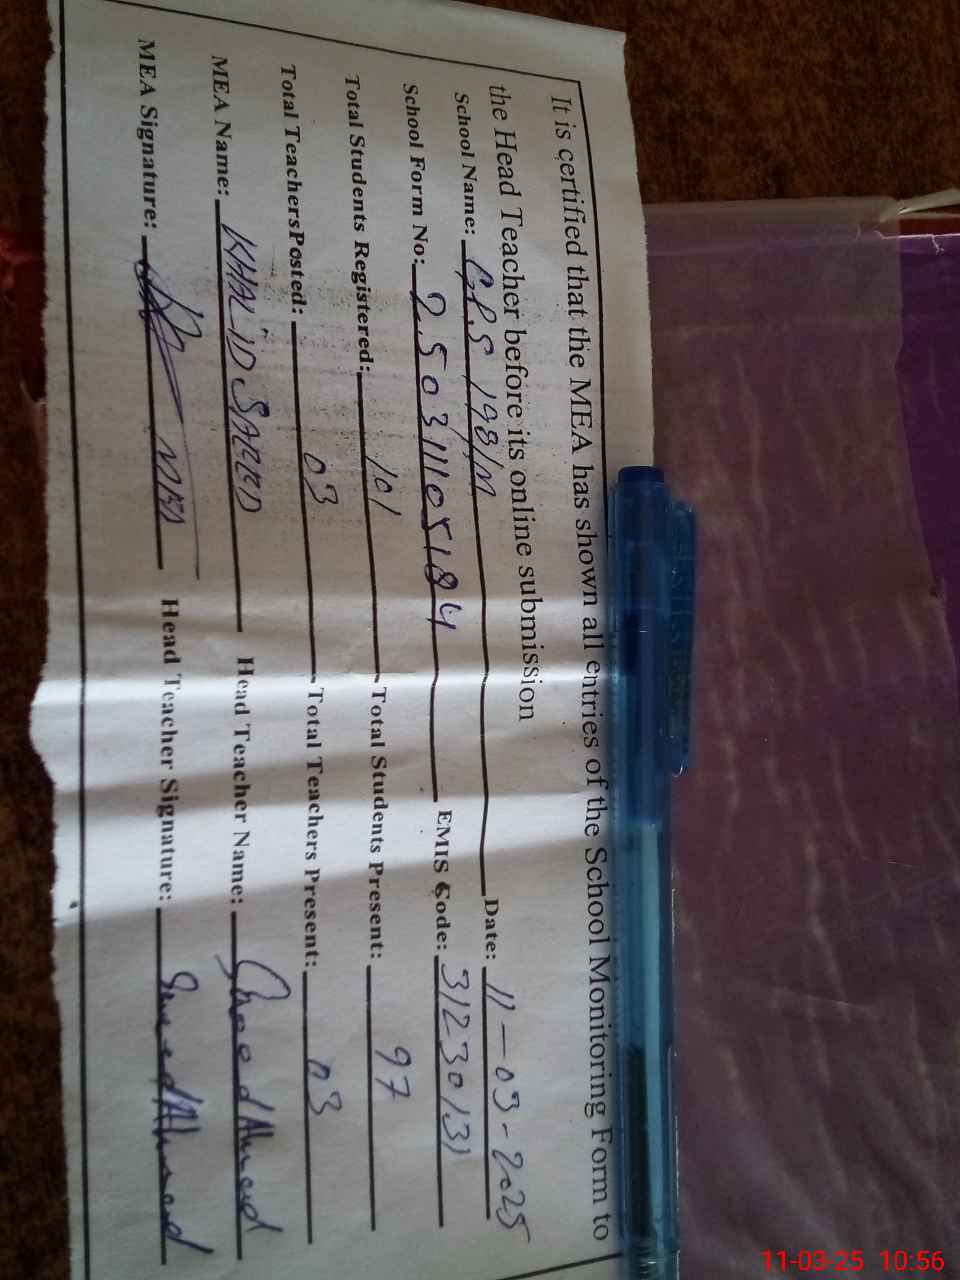 It is certified that the MEA has shown all entries of the School Monitoring Form to
the Head Teacher before its online submission
School Name: G.P.S 198/M Date: 11-03-2025
School Form No: 250311105184 EMIS Code: 31230131
Total Students Registered: 101 Total Students Present: 97
Total TeachersPosted: 03 Total Teachers Present: 03
MEA Name: KHALID SAEED Head Teacher Name: Saeed Ahmed
MEA Signature: Head Teacher Signature: Saeed Ahmed
11-03-25 10:56